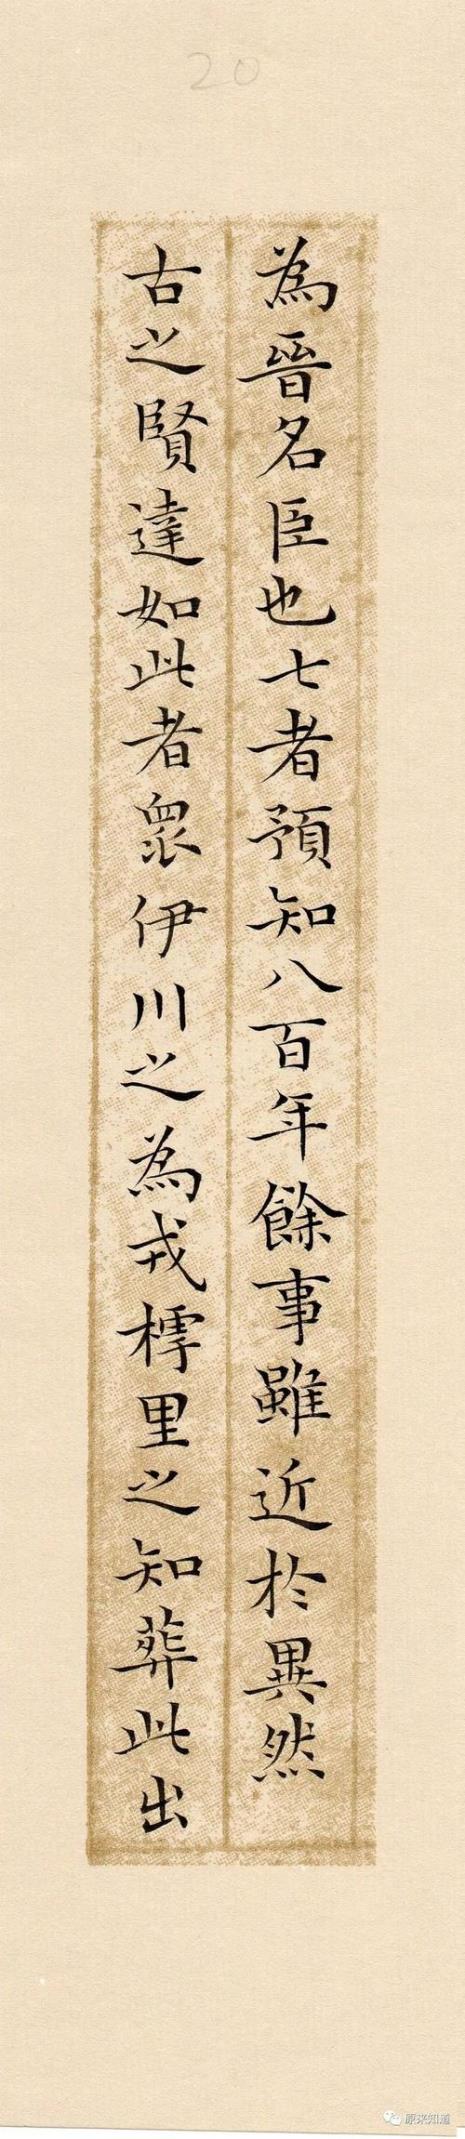 20
為晉名臣也七者預知八百年餘事雖近於異然
古之賢達如此者眾伊川之為戎樗里之知葬此出
原来知道